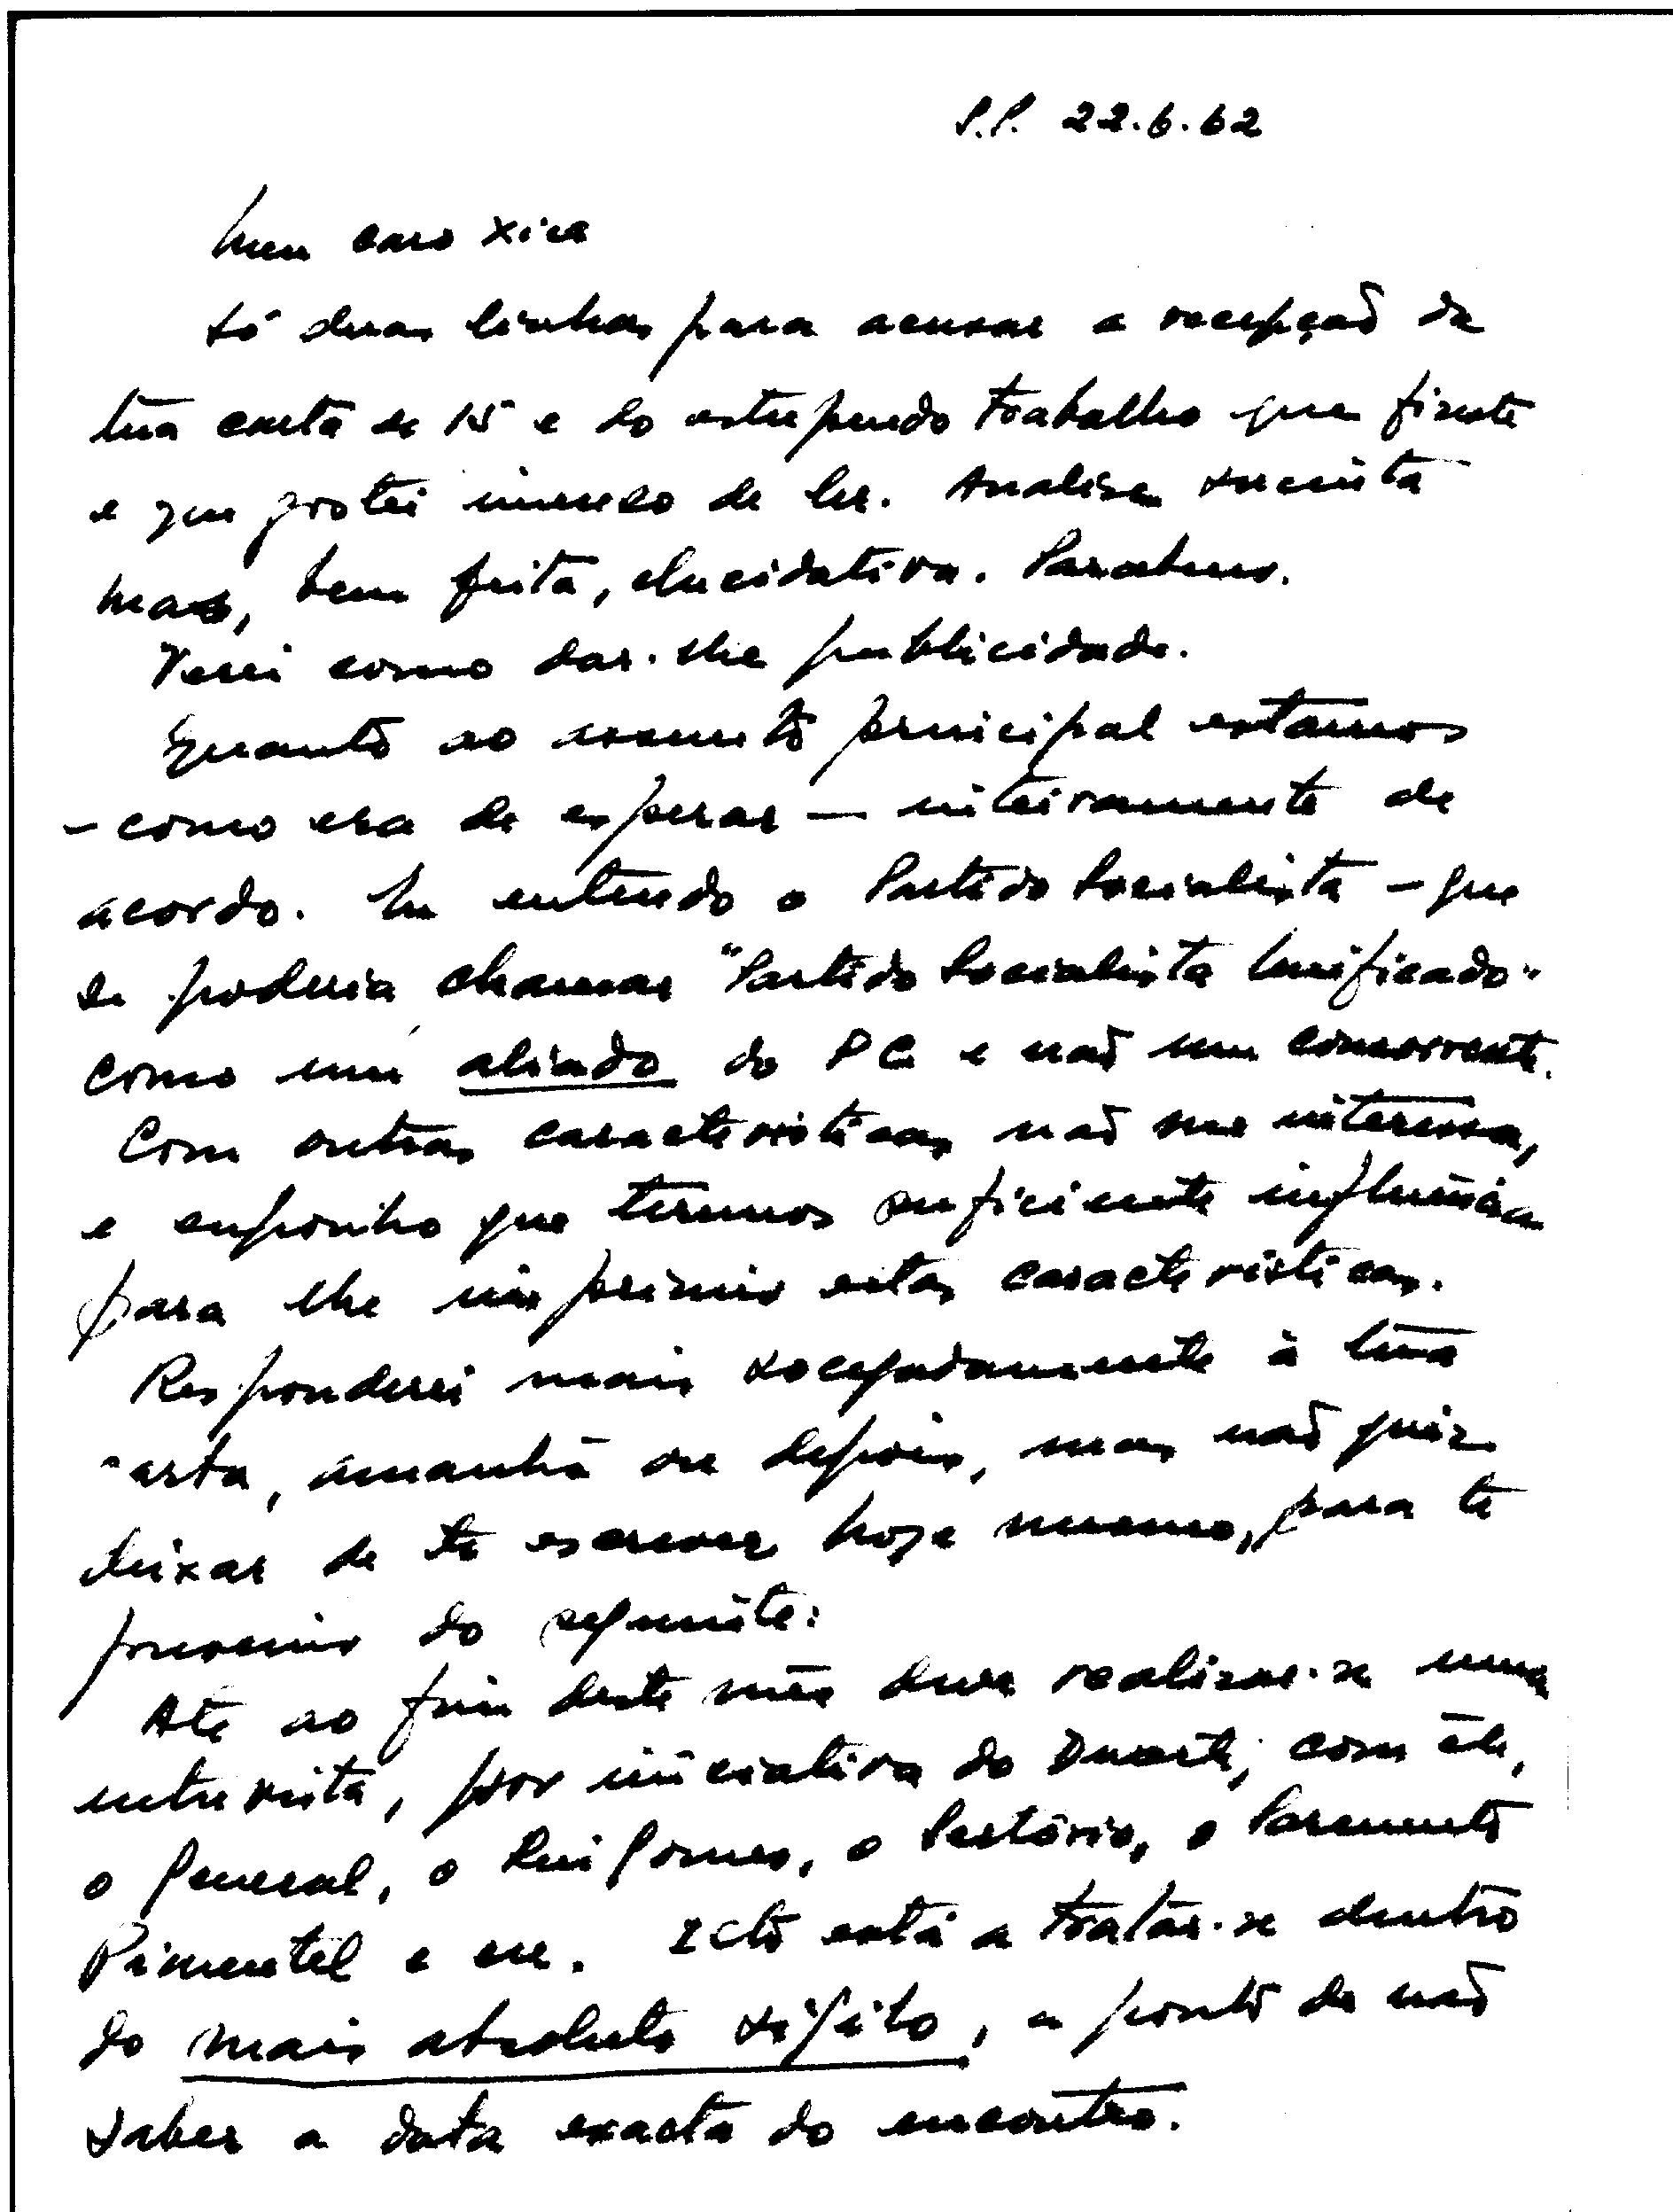 S.P. 22.6.62
Meu caro Xico
Só duas linhas para acusar a recepção da
tua carta de 15 e do estupendo trabalho que fizeste
e que gostei imenso de ler. Analise sucinta
mas, bem feita, elucidativa. Parabens.
Verei como dar-lhe publicidade.
Quanto ao assunto principal estamos
- como era de esperar - inteiramente de
acordo. Eu entendo o Partido Socialista - que
se poderia chamar "Partido Socialista Unificado"
como um aliado do PC e não um concorrente.
Com outras caracteristicas não me interessa,
e suponho que termos suficiente influência
para lhe imprimir estas caracteristicas.
Responderei mais socegadamente à tua
carta, amanhã ou depois, mas não quiz
deixar de te escrever hoje mesmo, para te
prevenir do seguinte:
Até ao fim deste mês deve realizar-se uma
entrevista, por iniciativa do Duarte, com êle,
o General, o Rui Gomes, o Sertório, o Sarmento
Pimentel e eu. Isto está a tratar-se dentro
do mais absoluto sigilo, a ponto de não
saber a data exacta do encontro.